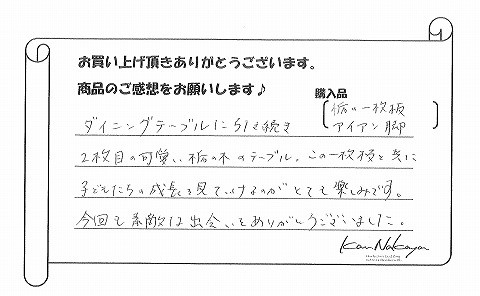 お買い上げ頂きありがとうございます。
商品のご感想をお願いします♪
購入品
栃の一枚板
アイアン脚
ダイニングテーブルに引き続き
2枚目の可愛い栃の木のテーブル。この一枚板と共に
子どもたちの成長を見ていけるのがとても楽しみです。
今回も素敵な出会いをありがとうございました。